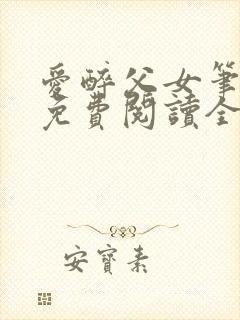 愛醉父女筆
免費閱讀全
安寶素